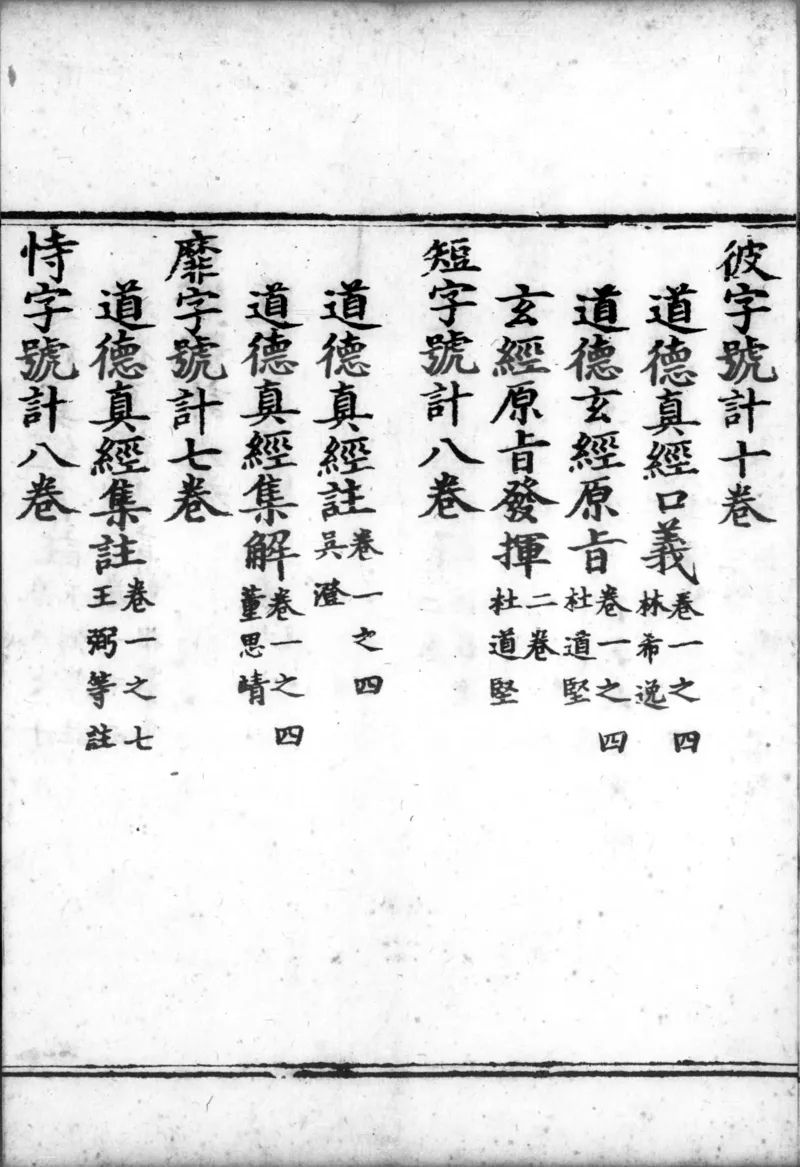 彼字號計十卷
道德真經口義卷一之四林希逸
道德玄經原旨卷一之四杜道堅
玄經原旨發揮二卷杜道堅
短字號計八卷
道德真經註卷一之四吳澄
道德真經集解卷一之四董思靖
靡字號計七卷
道德真經集註卷一之七王弼等註
恃字號計八卷